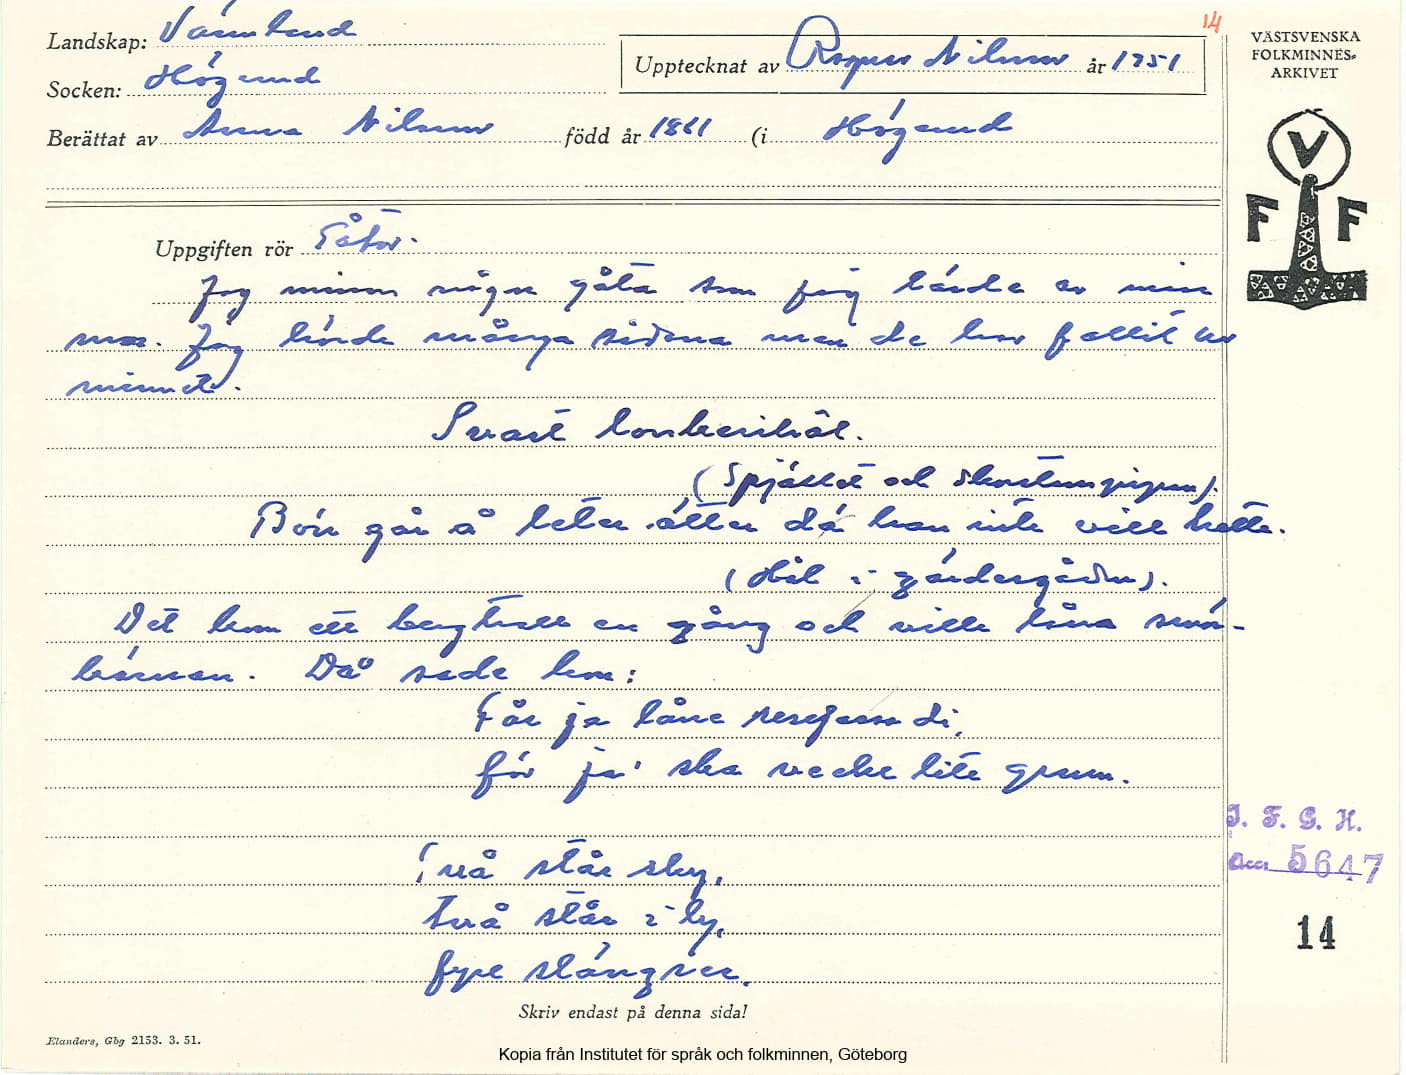 14
Landskap: Värmland
Socken: Högerud
Upptecknat av Ragnar Nilsson år 1951
Berättat av Anna Nilsson född år 1861 (i Högerud
VÄSTSVENSKA
FOLKMINNES-
ARKIVET
V
F F
Uppgiften rör Gåtor.
Jag minns några gåta som jag lärde av min
mor. Jag lärde många sådana men de har fallit ur
minnet.
Svart
(Spjället och skorstenspipan).
Börr går å leter ätter då han inte vill hette.
(Hål i gärdesgården).
Det kom ett bergtroll en gång och ville låna
Då sade hon:
Får ja låne di,
för ja' ska lite
I. F. G. H.
5647
Två står sky,
två står i by,
fyre slänger.
14
Skriv endast på denna sida!
Elanders, Gbg 2153. 3. 51.
Kopia från Institutet för språk och folkminnen, Göteborg